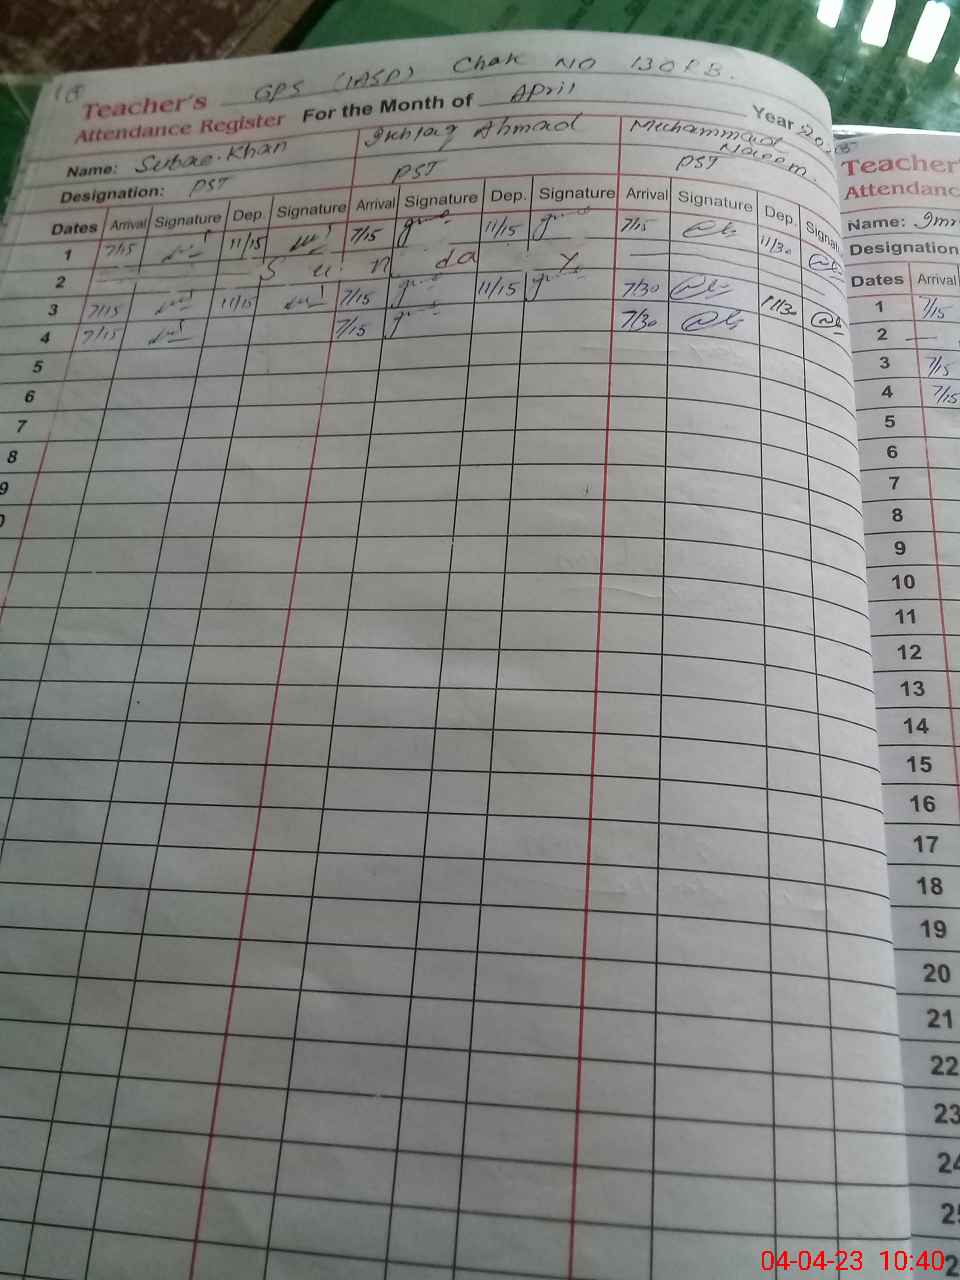 18
Teacher's GPS (IASP) Chak No 130 RB.
Attendance Register For the Month of April Year 20
Name: Khan Ikhlaq Ahmad Muhammad Naeem.
Designation: PST PST PST
Dates Arrival Signature Dep. Signature Arrival Signature Dep. Signature Arrival Signature Dep. Signatu
1 7/15 11/15 7/15 11/15 7/15 11/30
2 S u n da y
3 7/15 11/15 7/15 11/15 7/30 11/30
4 7/15 7/15 7/30
5
6
7
8
9
0
Teacher'
Attendanc
Name: Imr
Designation
Dates Arrival
1 7/15
2
3 7/15
4 7/15
5
6
7
8
9
10
11
12
13
14
15
16
17
18
19
20
21
22
23
24
25
2
04-04-23 10:40